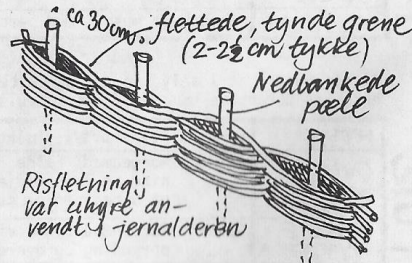 ca 30 cm. flettede, tynde grene
(2-2½ cm tykke)
Nedbankede
pæle
Risfletning
var uhyre an-
vendt i jernalderen